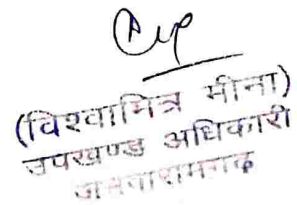 (विश्वामित्र मीना)
उपखण्ड अधिकारी